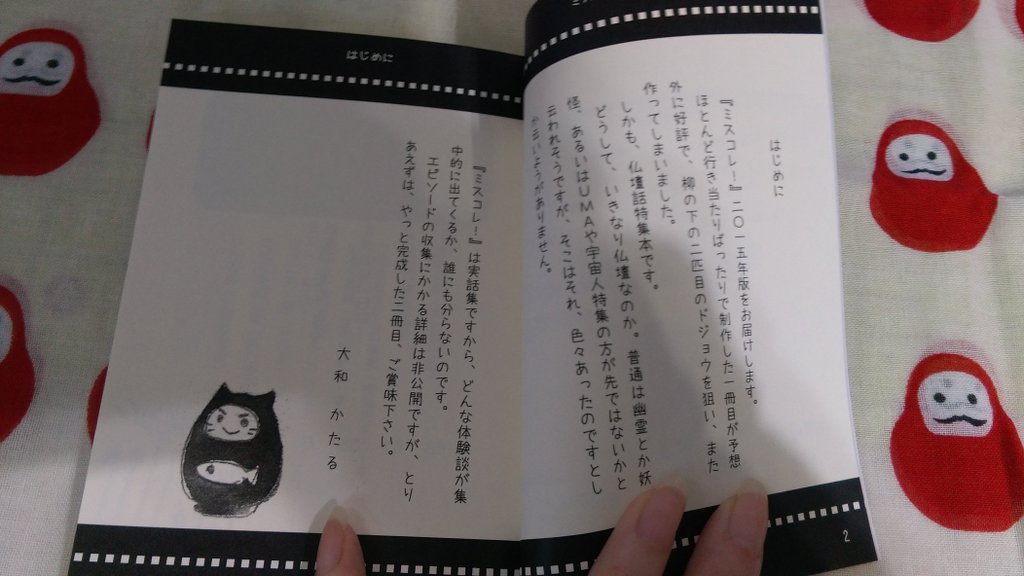 はじめに
『ミスコレ！』二〇一五年版をお届けします。
ほとんど行き当たりばったりで制作した一冊目が予想
外に好評で、柳の下の二匹目のドジョウを狙い、また
作ってしまいました。
しかも、仏壇話特集本です。
どうして、いきなり仏壇なのか。普通は幽霊とか妖
怪、あるいはＵＭＡや宇宙人特集の方が先ではないかと
云われそうですが、そこはそれ、色々あったのですとし
か云いようがありません。
2
はじめに
『ミスコレ！』は実話集ですから、どんな体験談が集
中的に出てくるか、誰にも分らないのです。
エピソードの収集にかかる詳細は非公開ですが、とり
あえずは、やっと完成した二冊目、ご賞味下さい。
大和　かたる